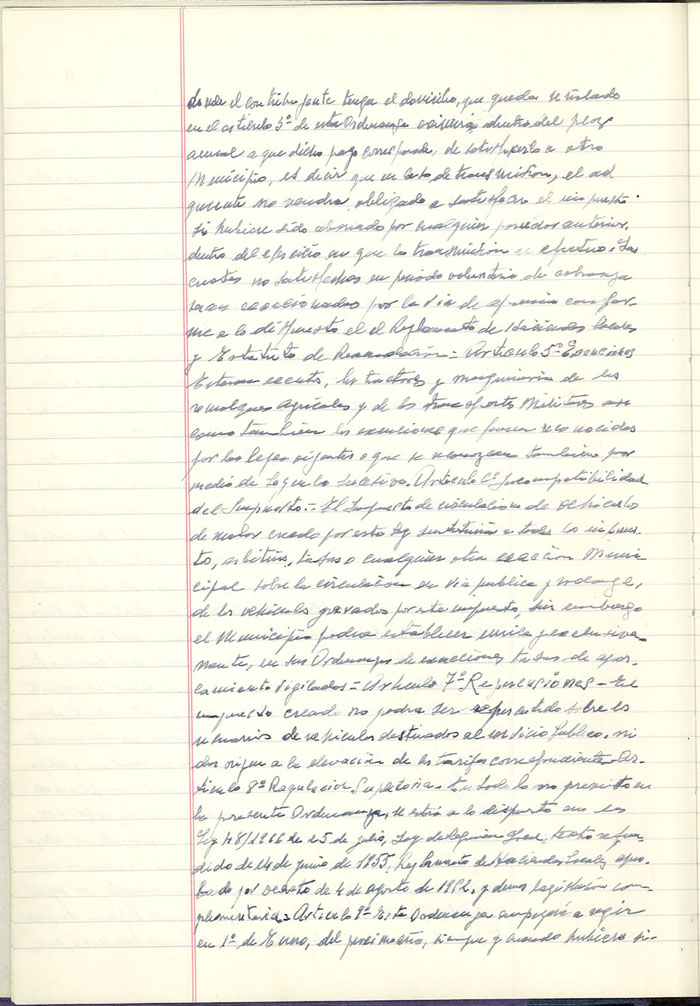 donde el contribuyente tenga el domicilio, que queda señalado
en el artículo 5º de esta Ordenanza dentro del plazo
anual a que dicho pago corresponda, de satisfacerlo a otro
Municipio, es decir que en caso de transmisión, el ad
quirente no vendra obligado a satisfacer el impuesto
si hubiere sido abonado por cualquier poseedor anterior,
dentro del ejercicio en que la transmision se efectue. Las
cuotas no satisfechas en periodo voluntario de cobranza
seran por la via de apremio confor
me a lo dispuesto el el Reglamento de Haciendas locales
y Estatuto de Recaudación = Articulo 5º Exenciones
Estaran exentos, los tractores y maquinaria de los
remolques agricolas y de los transportes Militares asi
como tambien las exenciones que fueran reconocidas
por las leyes vigentes o que se reconozcan tambien por
medio de Ley en lo sucesivo. Articulo 6º Incompatibilidad
del Impuesto.= El Impuesto de circulacion de vehiculos
de motor creado por esta Ley sustituira a todos los impues
to, arbitrios, tasas o cualquier otra exaccion Muni
cipal sobre la circulacion en via publica y rodaje,
de los vehiculos gravados por este impuesto, sin embargo
el Municipio podra establecer unica y exclusiva
mente, en sus Ordenanzas de exacciones tasas de apar-
camiento vigilados = Articulo 7º Repercusiones = El
impuesto creado no podra ser repercutido sobre los
usuarios de vehiculos destinados al servicio publico, ni
dar origen a la elevación de las tarifas correspondientes= Ar-
ticulo 8º Regulacion Supletoria= En todo lo no previsto en
la presente Ordenanza, se estará a lo dispuesto en la
Ley 48/1966 de 25 de julio, Ley de Régimen Local, texto refun-
dido de 24 de junio de 1955, Reglamento de Haciendas Locales apro-
bado por decreto de 4 de agosto de 1952, y demas legislacion com-
plementaria= Articulo 9º= Esta Ordenanza empezará a regir
en 1º de Enero, del proximo año, siempre y cuando hubiera si-